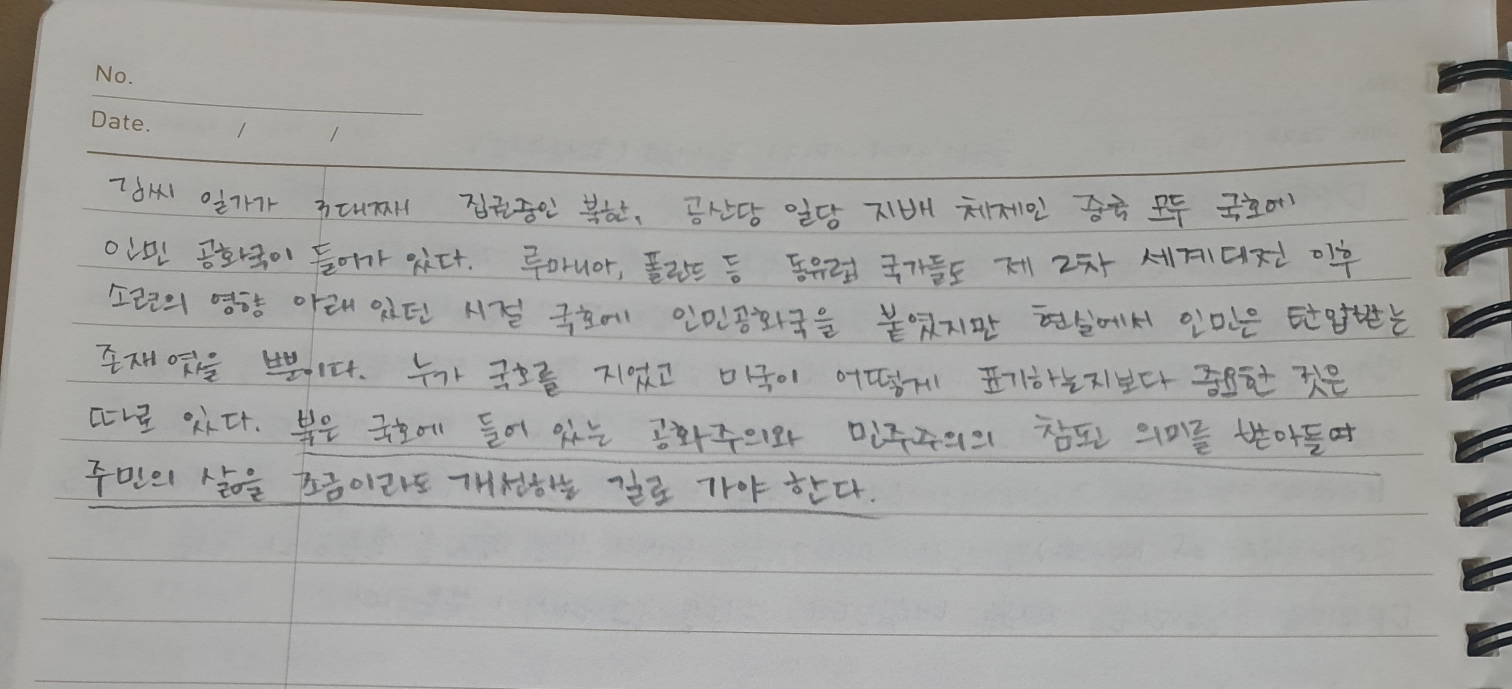 No.
Date. / /
김씨 일가가 3대째 집권중인 북한, 공산당 일당 지배 체제인 중국 모두 국호에
인민 공화국이 들어가 있다. 루마니아, 폴란드 등 동유럽 국가들도 제 2차 세계대전 이후
소련의 영향 아래 있던 시절 국호에 인민공화국을 붙였지만 현실에서 인민은 탄압받는
존재였을 뿐이다. 누가 국호를 지었고 미국이 어떻게 표기하는지보다 중요한 것은
따로 있다. 북은 국호에 들어 있는 공화주의와 민주주의의 참된 의미를 받아들여
주민의 삶을 조금이라도 개선하는 길로 가야 한다.